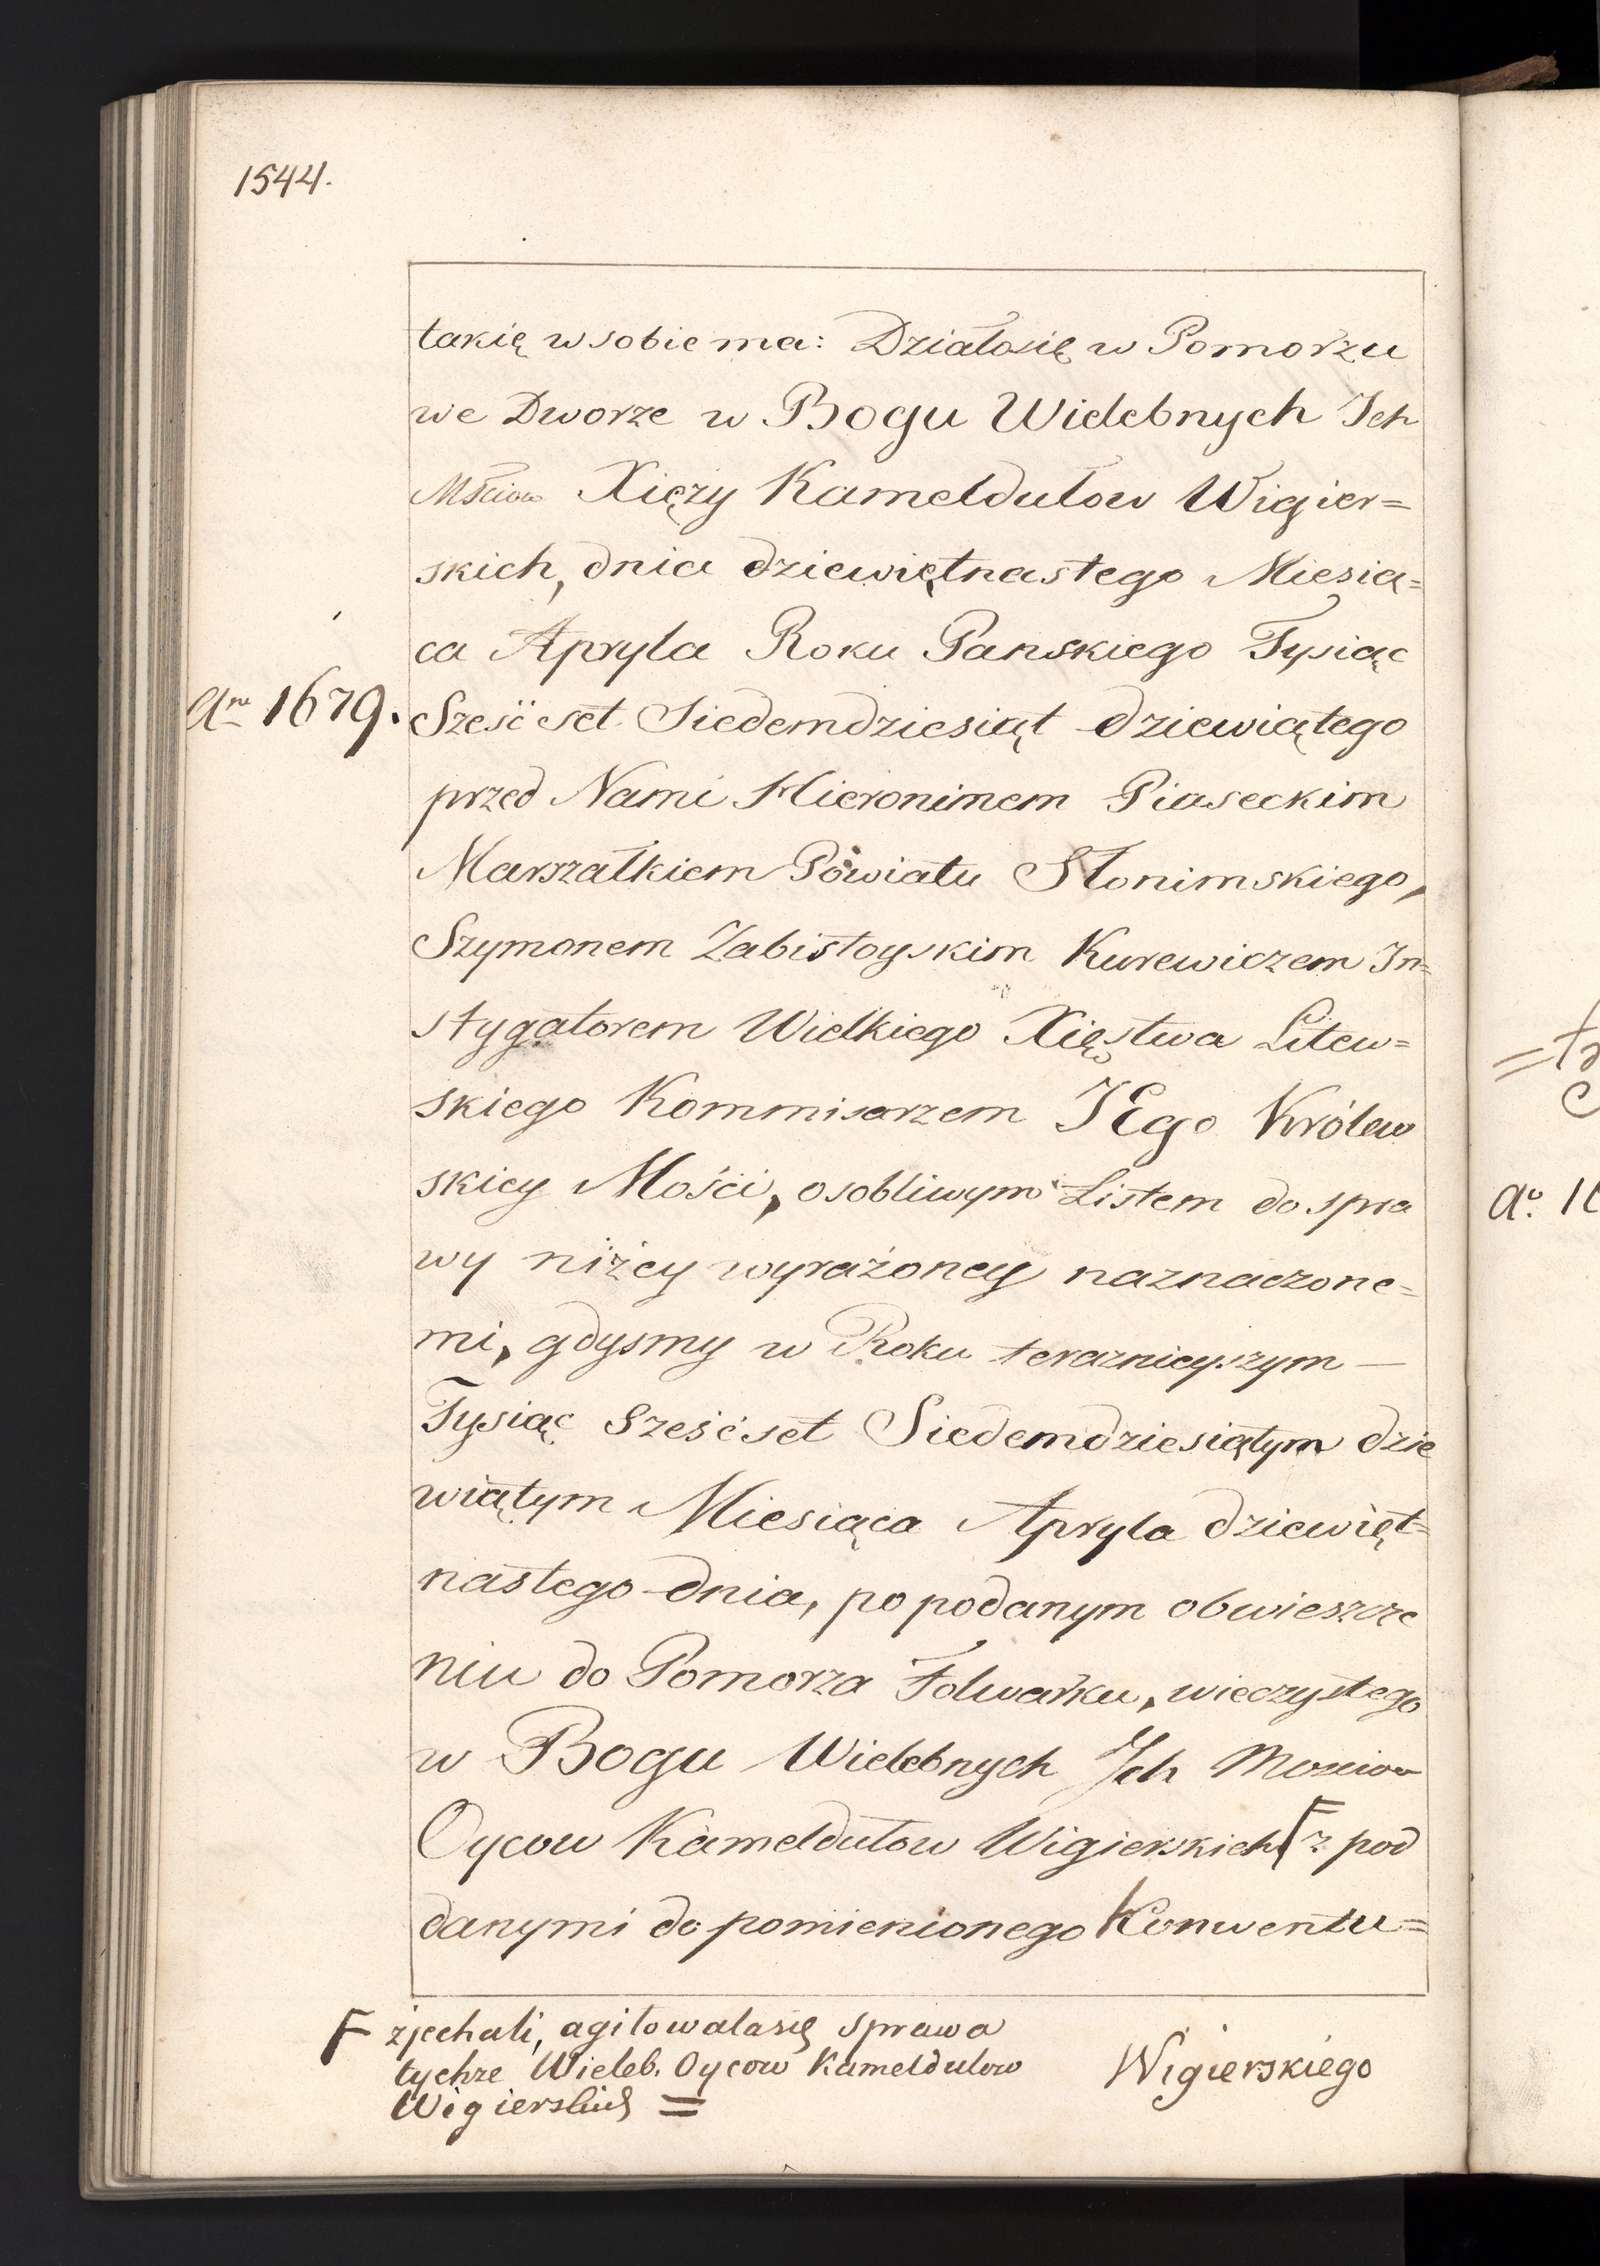 1544.
takię w sobie ma: Działosię w Pomorzu
we Dworze w Bogu Wielebnych Ich
Mściow Xięży Kameldułow Wigier=
skich, dnia dziewiętnastego Miesią=
ca Apryla Roku Panskiego Tysiąc
Ann 1679. Sześć set Siedemdziesiąt dziewiątego
przed Nami Hieronimem Piaseckim
Marszałkiem Powiatu Słonimskiego,
Szymonem Zabistoyskim Kurewiczem In=
stygatorem Wielkiego Xięstwa Litew=
skiego Kommisarzem JEgo Królew
skiey Mości, osobliwym Listem do spra
wy niżey wyrażoney naznaczone=
mi, gdysmy w Roku teraznieyszym —
Tysiąc Sześćset Siedemdziesiątym dzie
wiątym Miesiąca Apryla dziewięt=
nastego dnia, po podanym obwieszcze
niu do Pomorza Folwarku, wieczystego
w Bogu Wielebnych Ich Mosciow
Oycow Kameldułow Wigierskich F z pod
danymi do pomienionego Konwentu=
F zjechali, agitowalasię sprawa
tychze Wieleb. Oycow Kameldulow
Wigierskich =
Wigierskiégo